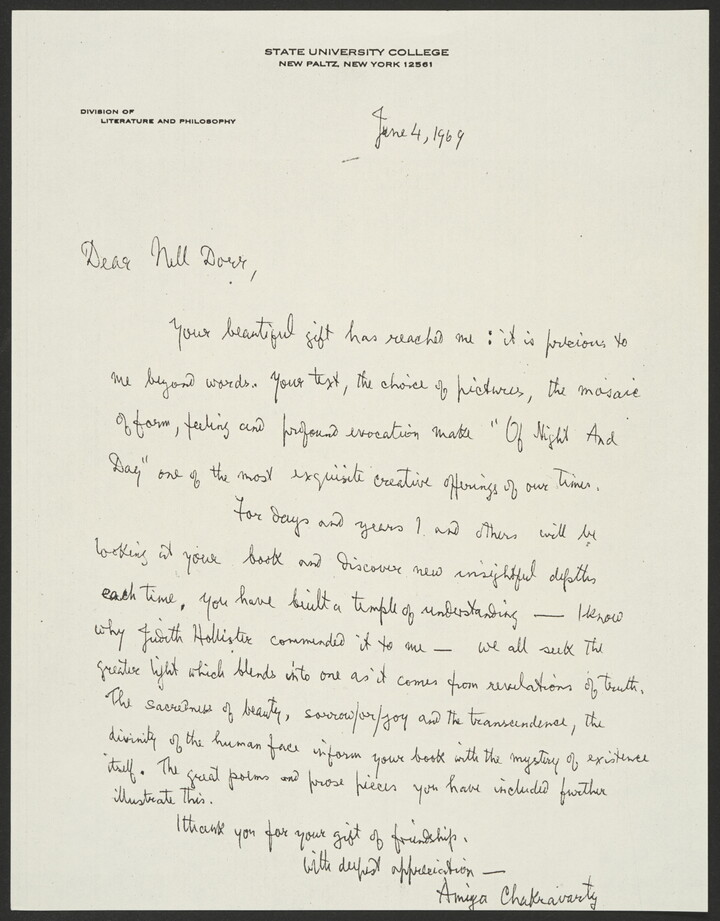 STATE UNIVERSITY COLLEGE
NEW PALTZ, NEW YORK 12561
DIVISION OF
LITERATURE AND PHILOSOPHY
June 4, 1969
Dear Nell Dorr,
Your beautiful gift has reached me : it is precious to
me beyond words. Your text, the choice of pictures, the mosaic
of form, feeling and profound evocation make "Of Night And
Day" one of the most exquisite creative offerings of our times.
For days and years I and others will be
looking at your book and discover new insightful depths
each time. You have built a temple of understanding — I know
why Judith Hollister commended it to me — we all seek the
greater light which blends into one as it comes from revelations of truth.
The sacredness of beauty, sorrow/or/joy and the transcendence, the
divinity of the human face inform your book with the mystery of existence
itself. The great poems and prose pieces you have included further
illustrate this.
I thank you for your gift of friendship.
With deepest appreciation —
Amiya Chakravarty